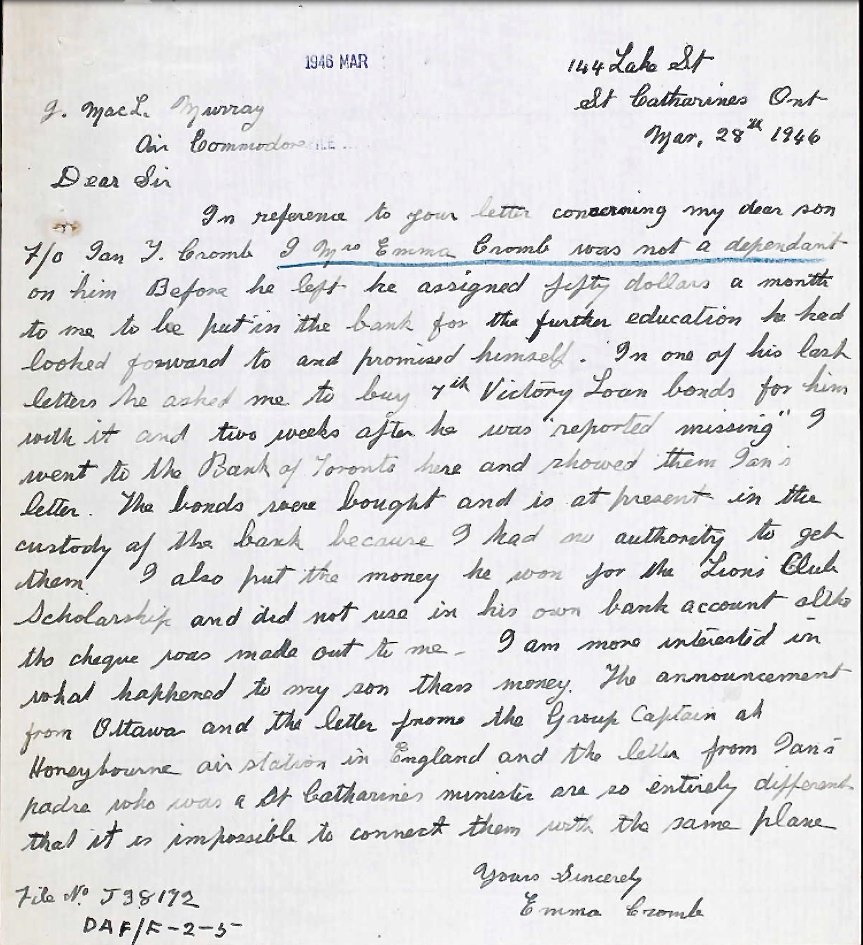 1946 MAR
144 Lake St
St Catharines Ont
Mar, 28th 1946
J. MacL. Murray
Air Commodore
Dear Sir
In reference to your letter concerning my dear son
F/o Ian Y. Cromb I Mrs Emma Cromb was not a dependant
on him Before he left he assigned fifty dollars a month
to me to be put in the bank for the further education he had
looked forward to and promised himself. In one of his last
letters he asked me to buy 7th Victory Loan bonds for him
with it and two weeks after he was "reported missing" I
went to the Bank of Toronto here and showed them Ian's
letter. The bonds were bought and is at present in the
custody of the bank because I had no authority to get
them. I also put the money he won for the Lions Club
Scholarship and did not use in his own bank account altho
the cheque was made out to me. I am more interested in
what happened to my son than money. The announcement
from Ottawa and the letter from the Group Captain at
Honeybourne air station in England and the letter from Ian's
padre who was a St Catharines minister are so entirely different
that it is impossible to connect them with the same plane
Yours Sincerely
Emma Cromb
File No J38172
DAF/F-2-5